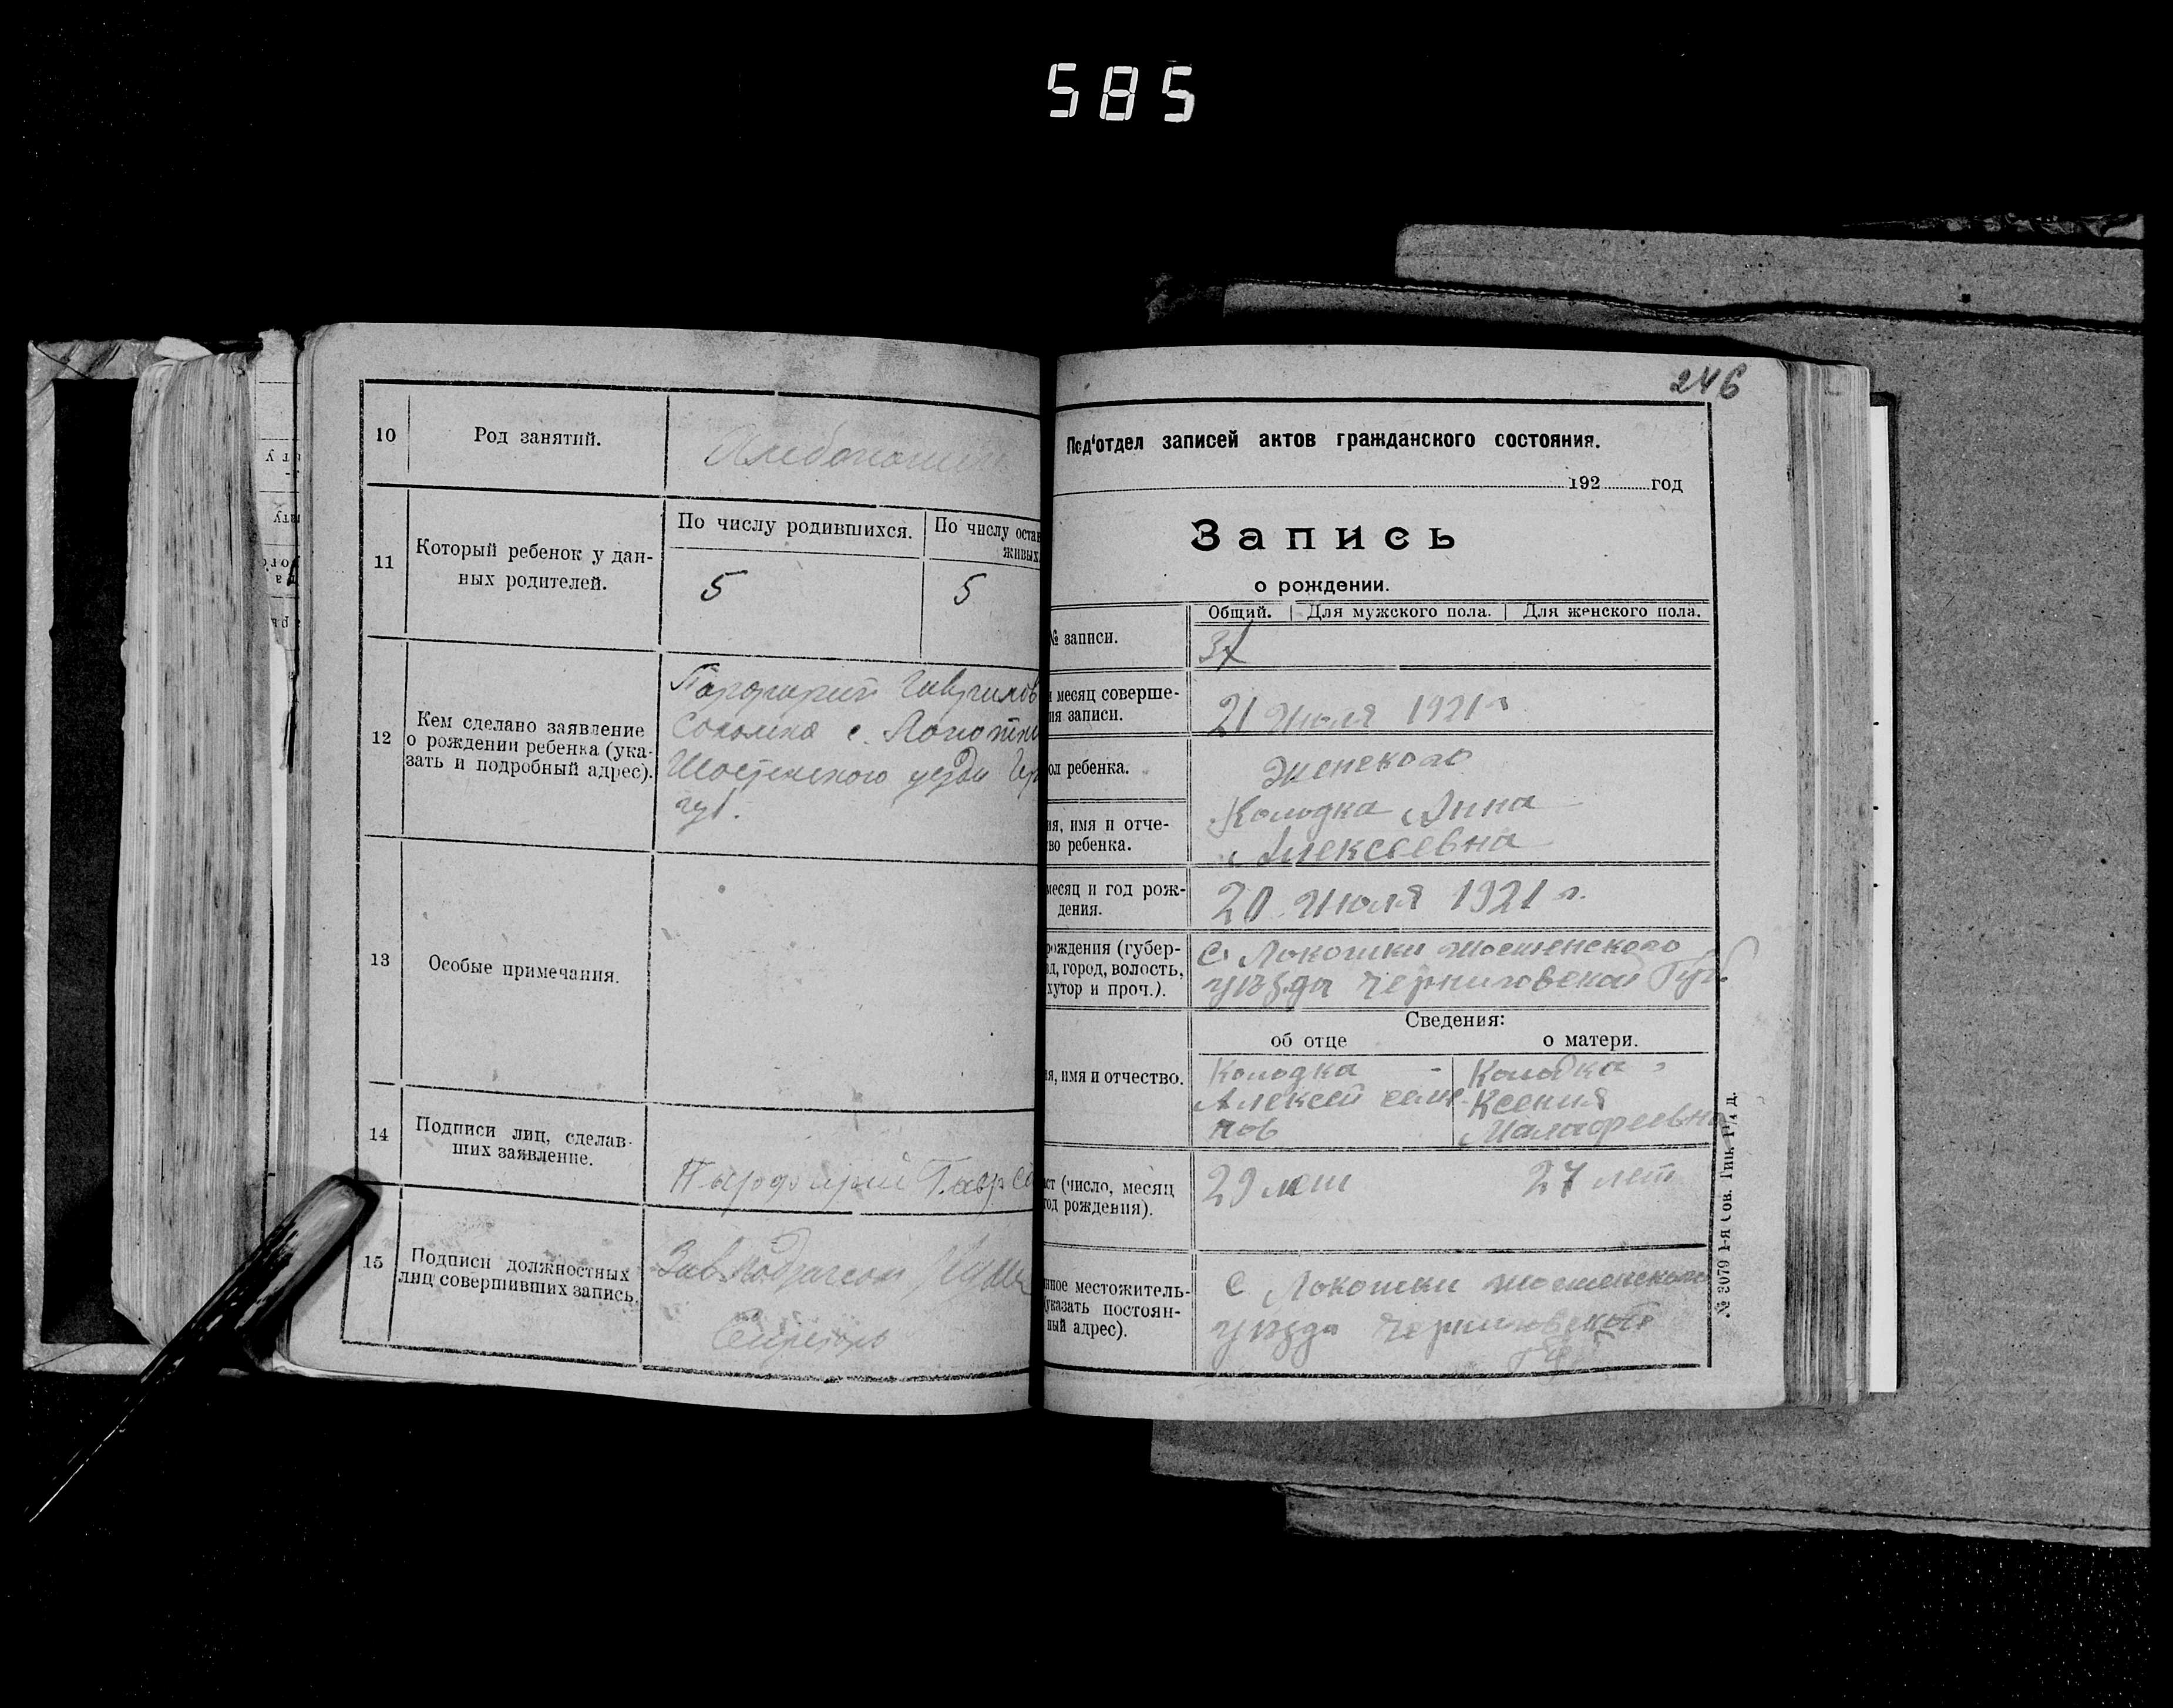 585
10
Род занятий.
11
Который ребенок у дан-
ных родителей.
По числу родившихся.
По числу остав
живых.
5
5
12
Кем сделано заявление
о рождении ребенка (ука-
зать и подробный адрес).
Гаврилов
с.
Шостенского уезда
губ.
13
Особые примечания.
14
Подписи лиц, сделав-
ших заявление.
15
Подписи должностных
лиц совершивших запись.
Зав.
Секретарь
246
Под'отдел записей актов гражданского состояния.
192 год
Запись
о рождении.
Общий. Для мужского пола. Для женского пола.
№ записи.
месяц соверше-
ия записи.
21 Июля 1921 г
ол ребенка.
женского
ия, имя и отче-
во ребенка.
Колодка Анна
Алексеевна
месяц и год рож-
дения.
20 Июля 1921 г.
рождения (губер-
зд, город, волость,
хутор и проч.).
С. Локотки шостенского
уезда Черниговской Губ.
Сведения:
об отце
о матери.
ия, имя и отчество.
Колодка
Алексей семе
нов
Колодка
Ксения
Малафеевна
ст (число, месяц
год рождения).
29 лет
27 лет
нное местожитель-
(указать постоян-
ный адрес).
С Локотки шостенского
уезда Черниговской
Губ
№ 3079 1-я Сов. Тип.